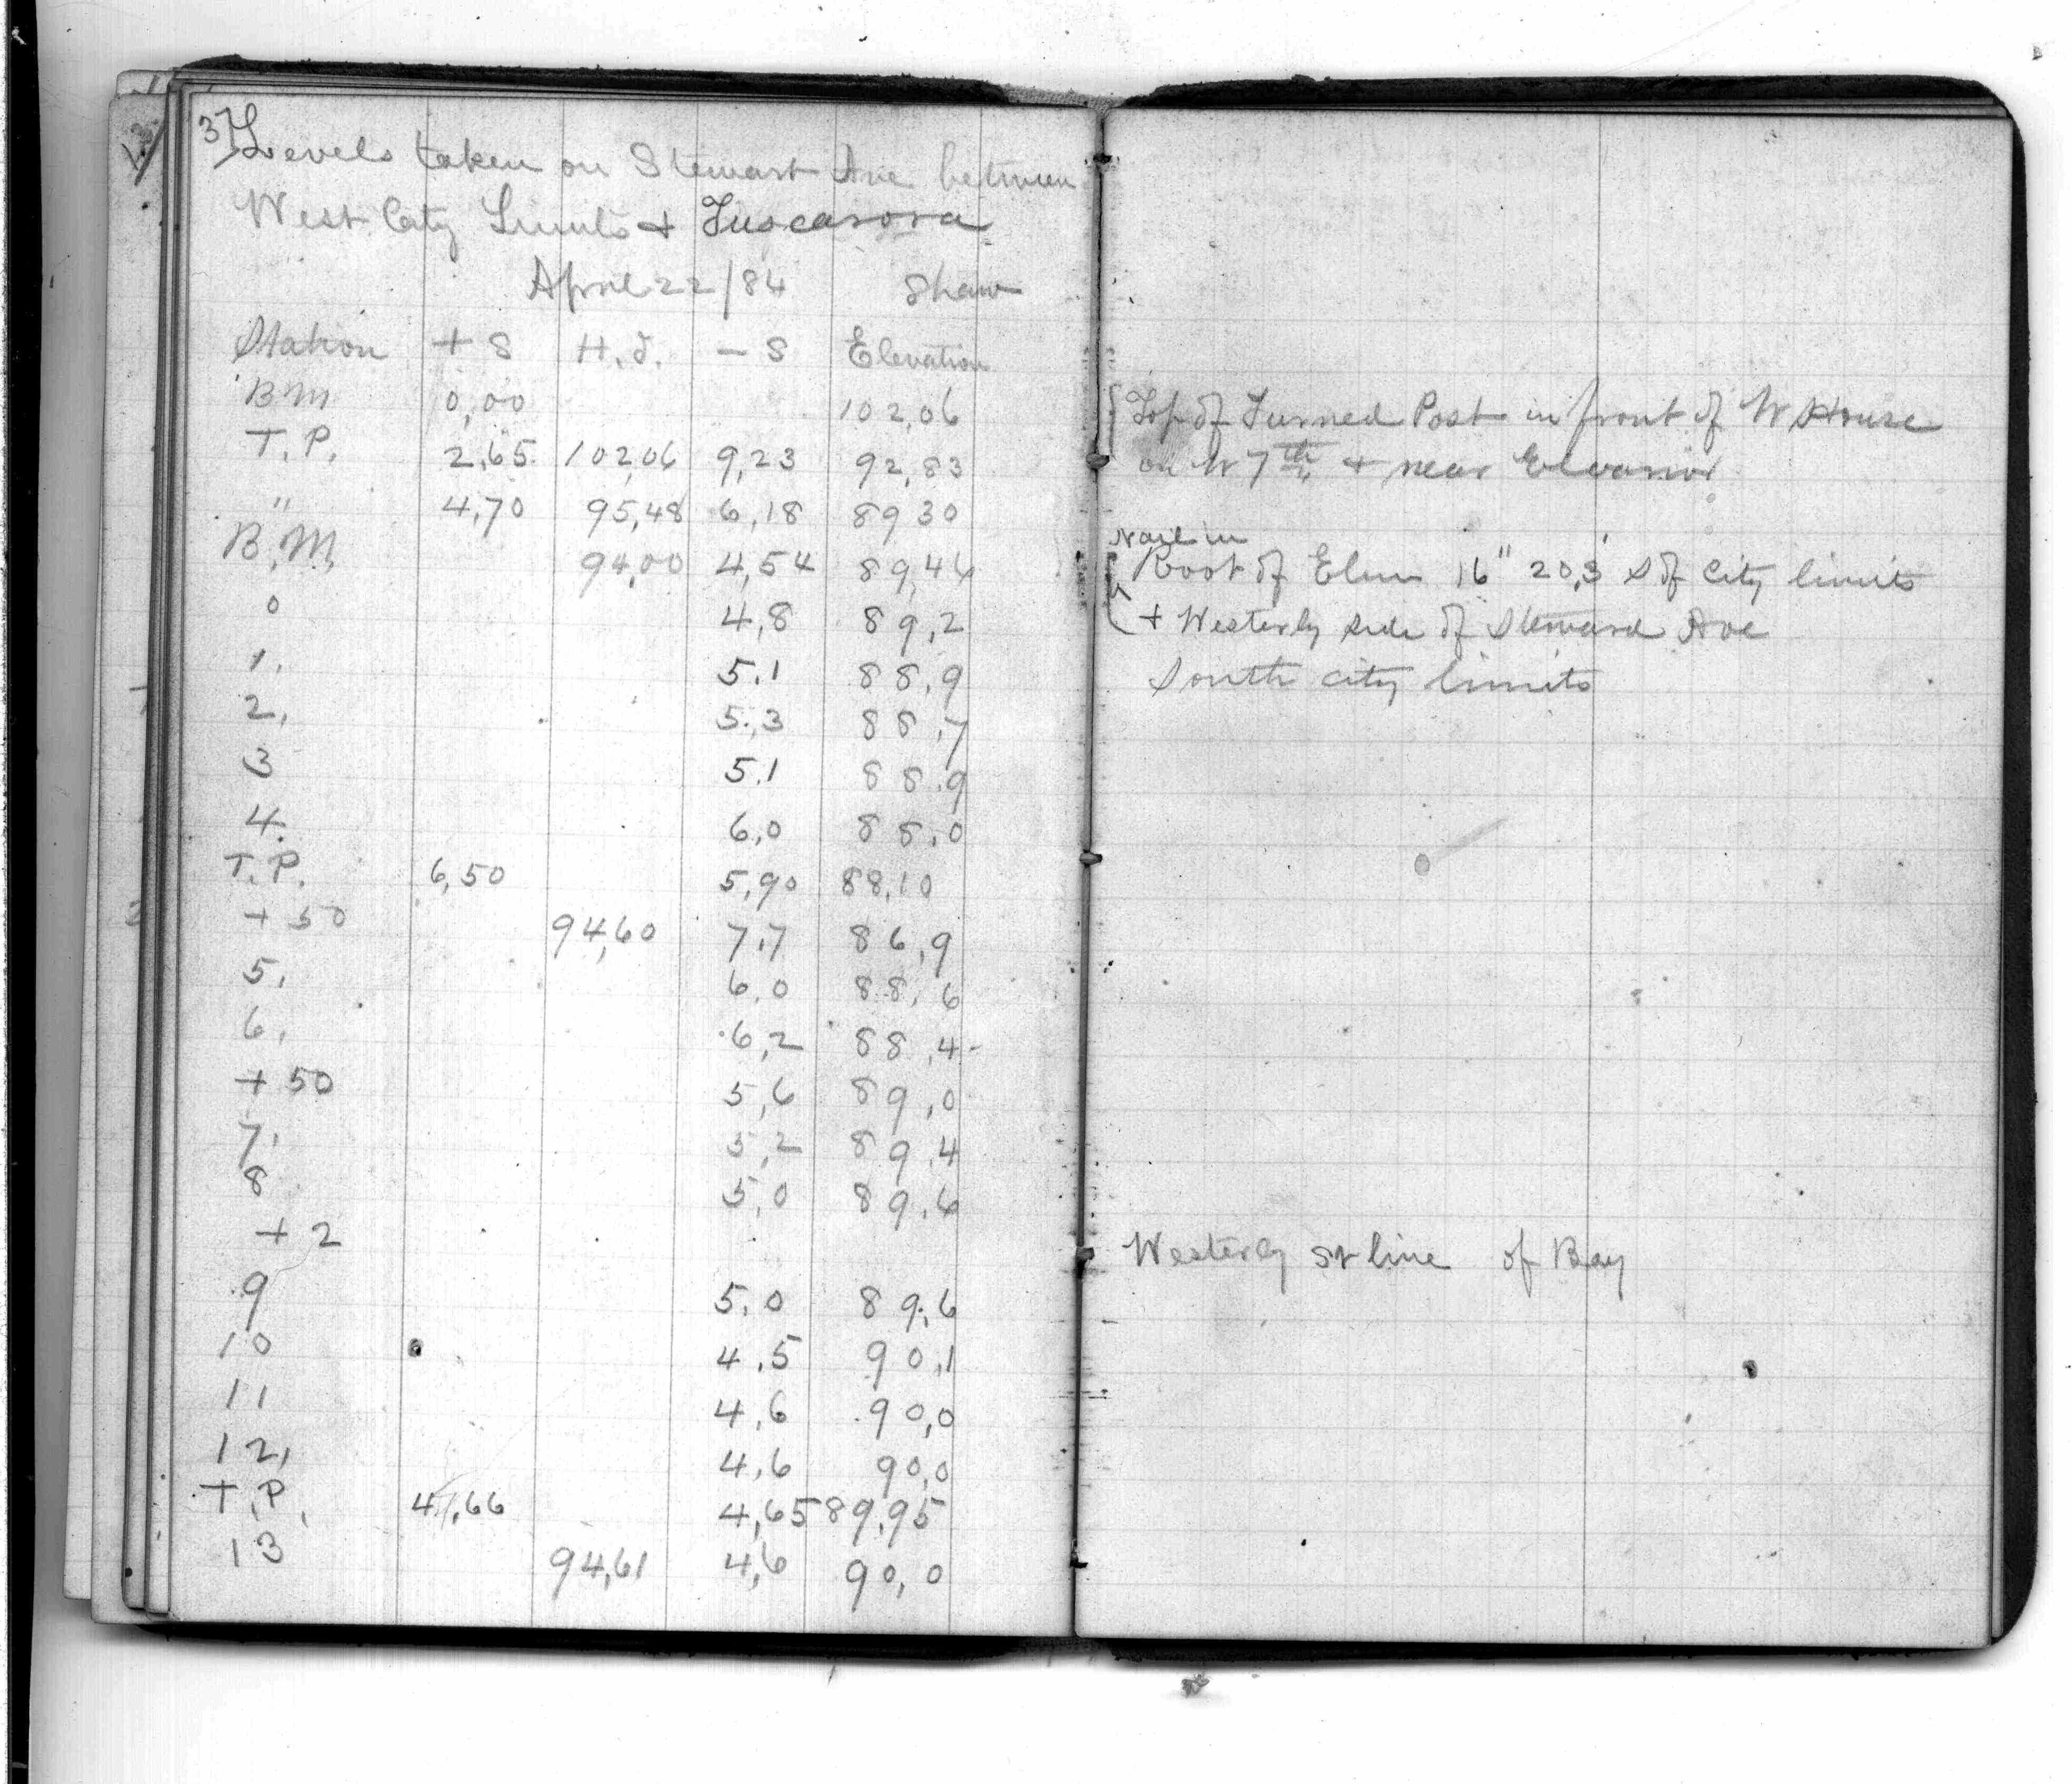 37
Levels taken on Stewart Ave between
West City Limits + Tuscarora
April 22/84 Shaw
Station + S H.I. - S Elevation
BM 0,00 102,06
T.P. 2,65 102,06 9,23 92,83
" 4,70 95,48 6,18 89 30
B.M. 94,00 4,54 89,46
0 4,8 89,2
1. 5.1 88,9
2. 5.3 88,7
3 5.1 88.9
4. 6,0 88,0
T.P. 6,50 5,90 88,10
+ 50 94,60 7,7 86,9
5. 6,0 88,6
6. 6,2 88,4
+ 50 5,6 89,0
7. 5,2 89,4
8 5,0 89,6
+ 2
9 5,0 89,6
10 4,5 90,1
11 4,6 90,0
12, 4,6 90,0
T.P. 4,66 4,65 89,95
13 94,61 4,6 90,0
Top of Turned Post in front of W House
on W 7th + near Eleanor
Nail in
Root of Elm 16" 20,3' S of City limits
+ Westerly side of Steward Ave
South city limits
Westerly St line of Bay